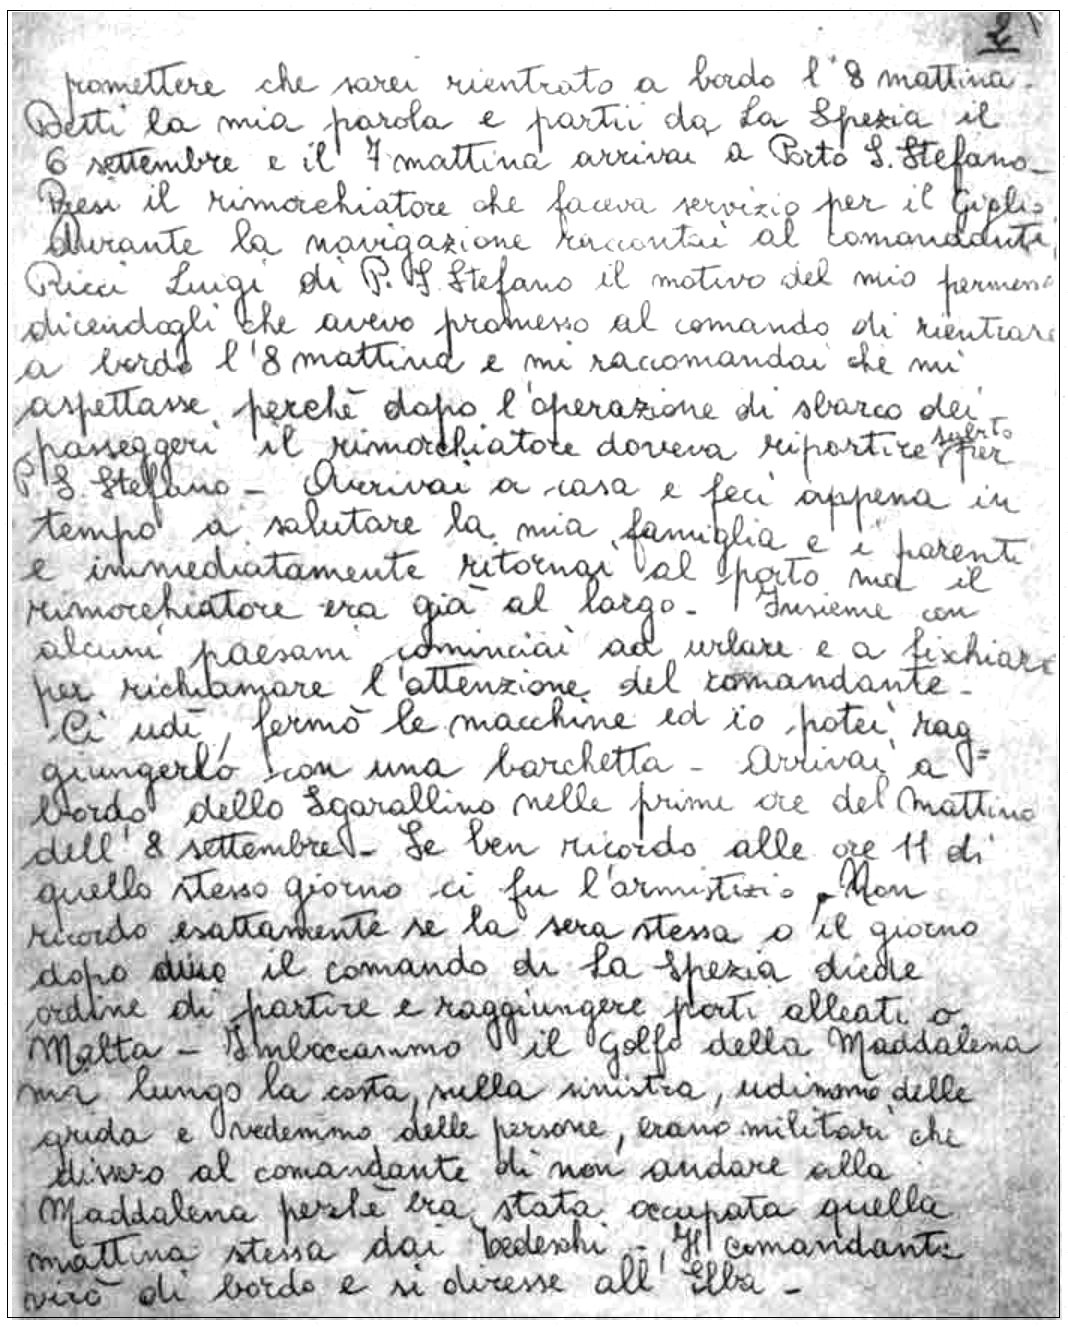 2
promettere che sarei rientrato a bordo l'8 mattina.
Detti la mia parola e partii da La Spezia il
6 settembre e il 7 mattina arrivai a Porto S. Stefano_
Presi il rimorchiatore che faceva servizio per il Giglio
durante la navigazione raccontai al comandante
Ricci Luigi di P. S. Stefano il motivo del mio permesso
dicendogli che avevo promesso al comando di rientrare
a bordo l'8 mattina e mi raccomandai che mi
aspettasse perchè dopo l'operazione di sbarco dei
passeggeri il rimorchiatore doveva ripartire subito per
P. S. Stefano - Arrivai a casa e feci appena in
tempo a salutare la mia famiglia e i parenti
e immediatamente ritornai al porto ma il
rimorchiatore era già al largo - Insieme con
alcuni paesani cominciai ad urlare e a fischiare
per richiamare l'attenzione del comandante -
Ci udì, fermò le macchine ed io potei rag=
giungerlo con una barchetta - Arrivai a
bordo dello Sgarallino nelle prime ore del mattino
dell'8 settembre - Se ben ricordo alle ore 11 di
quello stesso giorno ci fu l'armistizio. Non
ricordo esattamente se la sera stessa o il giorno
dopo il comando di La Spezia diede
ordine di partire e raggiungere porti alleati o
Malta - Imboccammo il Golfo della Maddalena
ma lungo la costa, sulla sinistra, udimmo delle
grida e vedemmo delle persone, erano militari che
dissero al comandante di non andare alla
Maddalena perchè era stata occupata quella
mattina stessa dai Tedeschi - Il comandante
virò di bordo e si diresse all'Elba -